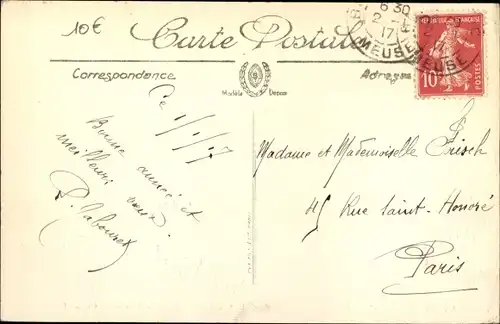 10€
6 30
2 - 1
17
MEUSE
Carte Postale
RÉPUBLIQUE FRANÇAISE
10c
POSTES
MEUSE
Correspondance
Modèle Déposé
Adresse
Ce 1/1/17
Bonne année et
meilleurs vœux.
P. Tabouret
Madame et Mademoiselle Frisch
45 Rue Saint-Honoré
Paris